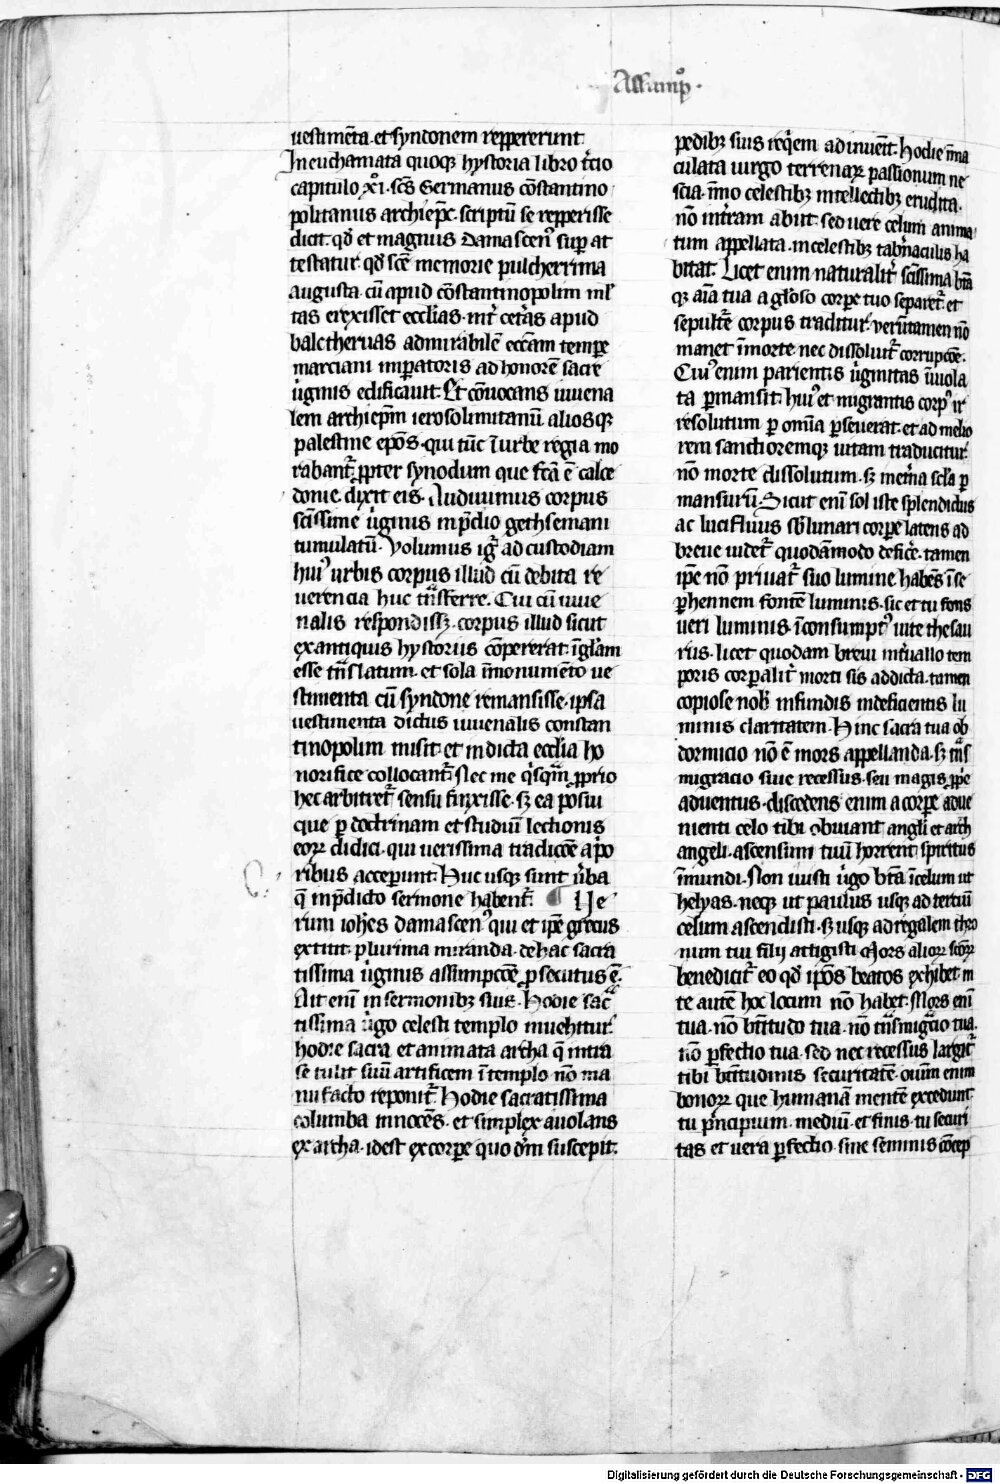 Assumpͦ.
uestimēta .et syndonem reppererunt
In euchamata quoqꝫ hystoria libro t͛cio
capitulo .xͦl. scs̄ Germanus cōstantino
politanus archiep̄c. scriptū se repperisse
dicit. qd̄ et magnus Damascenꝰ sup͛ at
testatur. qd̄ sc̄e memorie pulcherrima
augusta. cū apud cōstantinopolim ml͛
tas erexisset eccl̄ias. int͛ cet͛as apud
balcthernas admirabilē ecc̄am temp̄e
marciani imꝑatoris ad honorē sacre
u͛ginis edificauit. Et cōuocans iuuena
lem archiep̄m ierosolimitanū aliosqꝫ
palestine ep̄os. qui tūc ī urbe regia mo
rabant͛ ꝓpter synodum que fc̄ā ē calce
donie. dixit eis. Audiuimus corpus
sc̄issime u͛ginis in p̄dio gethsemani
tumulatū. Volumus ig͛ ad custodiam
huiꝰ urbis corpus illud cū debita re
uerencia huc tn̄sferre. Cui cū iuue
nalis respondissꝫ. corpus illud sicut
ex antiquis hystoriis cōpererat. ī gl̄am
esse tn̄slatum. et sola ī monumēto ue
stimenta cū syndone remansisse. ipsa
uestimenta dictus iuuenalis constan
tinopolim misit. et in dicta eccl̄ia ho
norifice collocant͛. Nec me q͛sqm̄ ꝓprio
hec arbitret͛ sensu finxisse. sꝫ ea posui
que ꝑ doctrinam et studiū lectionis
eoꝝ didici. qui uerissima tradicōe a p͛o
ribus acceperunt. Huc usqꝫ sunt u͛ba
q̄ in p̄dicto sermone habent͛. Ue
rum ioh̄es damascenꝰ qui et ip̄e grecus
extitit. plurima miranda. de hac sacra
tissima u͛ginis assumpcōe ꝓsecutus ē.
Ait enī in sermonibꝫ suis. Hodie sac͛
tissima u͛go celesti templo inuehitur.
hodie sacra et animata archa q̄ intra
se tulit suū artificem ī templo nō ma
nu facto reponit͛. Hodie sacratissima
columba innocēs. et simplex auolans
ex archa. idest ex corpe quo dm̄ suscepit.
pedibꝫ suis req͛em adinuēit. Hodie īma
culata uirgo terrenaꝝ passionum ne
scia. īmo celestibꝫ intellectibꝫ erudita.
nō in t͛ram abiit. sed uere celum anima
tum appellata. in celestibꝫ tab͛naculis ha
bitat. Licet enim naturalit͛ sc̄issima bt̄a
qꝫ aīa tua a gl̄oso corpe tuo separet͛. et
sepult͛e corpus traditur. verūtamen nō
manet ī morte nec dissoluit͛ corrupcōe.
Cuiꝰ enim parientis u͛ginitas īuiola
ta ꝑmansit. huiꝰ et migrantis corpꝰ ir
resolutum ꝑ om̄ia ꝑseuerat. et ad melio
rem sanctioremqꝫ uitam traducitur.
nō morte dissolutum. sꝫ in et͛na scl̄a ꝑ
mansurū. Sicut enī sol iste splendidus
ac lucifluus sb̄lunari corpe latens ad
breue uidet͛ quodāmodo defic͛e. tamen
ip̄e nō priuat͛ suo lumine habēs ī se
ꝑhennem fontē luminis. sic et tu fons
ueri luminis īconsumptꝰ uite thesau
rus. licet quodam breui int͛uallo tem
poris corꝑalit͛ morti sis addicta. tamen
copiose nob̄ infundis indeficientis lu
minis claritatem. Hinc sacra tua ob
dormicio nō ē mors appellanda. sꝫ tn̄s
migracio siue recessus. seu magis ꝓp͛e
aduentus. discedens enim a corpe adue
nienti celo tibi obuiant angli̅ et arch
angeli. ascensum tuū horrent spiritus
īmundi. Non iuisti u͛go bt̄a ī celum ut
helyas. neqꝫ ut paulus usqꝫ ad tertiū
celum ascendisti. sꝫ usqꝫ ad regalem thro
num tui filii attigisti. Mors alioꝝ sc̄oꝝ
benedicit͛ eo qd̄ ip̄os beatos exhibet. in
te autē hoc locum nō habet. Mors enī
tua. nō bt̄itudo tua. nō tn̄smigc̄io tua.
nō ꝑfectio tua. sed nec recessus largit͛
tibi bt̄itudinis securitatē. oīum enim
bonoꝝ que humanā mentē excedunt.
tu p͛ncipium. mediū. et finis. tu securi
tas et uera ꝑfectio. sine seminis cōcep
Digitalisierung gefördert durch die Deutsche Forschungsgemeinschaft - DFG